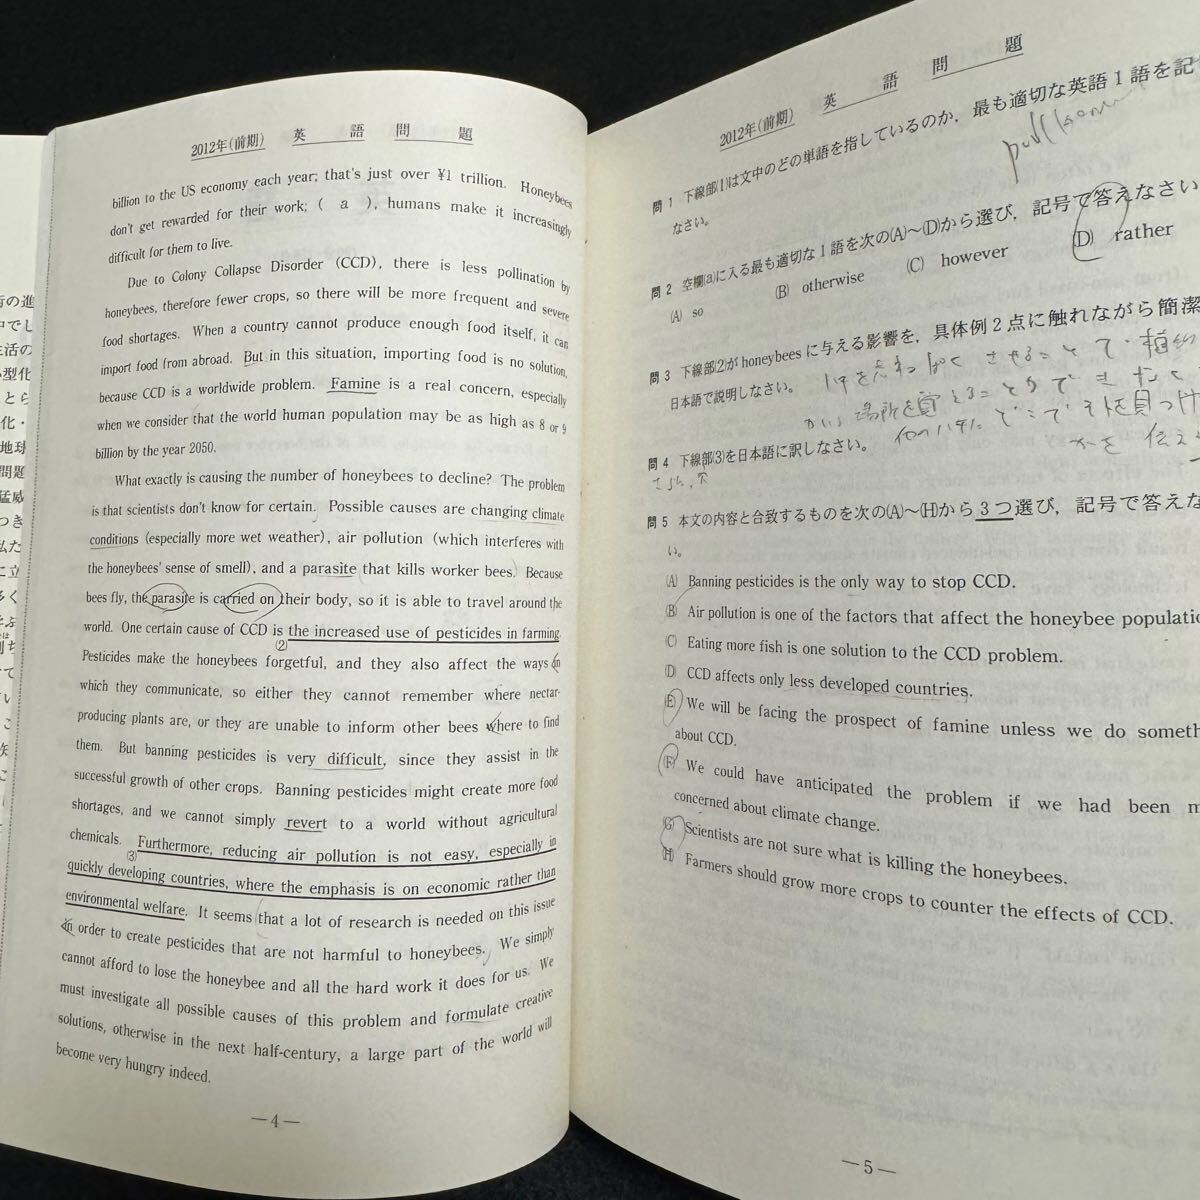 2012年(前期) 英語問題
billion to the US economy each year; that's just over ¥1 trillion. Honeybees
don't get rewarded for their work; ( a ), humans make it increasingly
difficult for them to live.
Due to Colony Collapse Disorder (CCD), there is less pollination by
honeybees, therefore fewer crops, so there will be more frequent and severe
food shortages. When a country cannot produce enough food itself, it can
import food from abroad. But in this situation, importing food is no solution,
because CCD is a worldwide problem. Famine is a real concern, especially
when we consider that the world human population may be as high as 8 or 9
billion by the year 2050.
What exactly is causing the number of honeybees to decline? The problem
is that scientists don't know for certain. Possible causes are changing climate
conditions (especially more wet weather), air pollution (which interferes with
the honeybees' sense of smell), and a parasite that kills worker bees. Because
bees fly, the parasite is carried on their body, so it is able to travel around the
world. One certain cause of CCD is the increased use of pesticides in farming.
(2)
Pesticides make the honeybees forgetful, and they also affect the ways in
which they communicate, so either they cannot remember where nectar-
producing plants are, or they are unable to inform other bees where to find
them. But banning pesticides is very difficult, since they assist in the
successful growth of other crops. Banning pesticides might create more food
shortages, and we cannot simply revert to a world without agricultural
chemicals. Furthermore, reducing air pollution is not easy, especially in
(3)
quickly developing countries, where the emphasis is on economic rather than
environmental welfare. It seems that a lot of research is needed on this issue
in order to create pesticides that are not harmful to honeybees. We simply
cannot afford to lose the honeybee and all the hard work it does for us. We
must investigate all possible causes of this problem and formulate creative
solutions, otherwise in the next half-century, a large part of the world will
become very hungry indeed.
—4—
2012年(前期) 英語問題
問1 下線部(1)は文中のどの単語を指しているのか, 最も適切な英語1語を記し
なさい。
問2 空欄(a)に入る最も適切な1語を次の(A)~(D)から選び, 記号で答えなさい
(A) so (B) otherwise (C) however (D) rather
問3 下線部(2)が honeybees に与える影響を, 具体例2点に触れながら簡潔
日本語で説明しなさい。
問4 下線部(3)を日本語に訳しなさい。
問5 本文の内容と合致するものを次の(A)~(H)から3つ選び, 記号で答えな
い。
(A) Banning pesticides is the only way to stop CCD.
(B) Air pollution is one of the factors that affect the honeybee populatio
(C) Eating more fish is one solution to the CCD problem.
(D) CCD affects only less developed countries.
(E) We will be facing the prospect of famine unless we do someth
about CCD.
(F) We could have anticipated the problem if we had been m
concerned about climate change.
(G) Scientists are not sure what is killing the honeybees.
(H) Farmers should grow more crops to counter the effects of CCD.
—5—